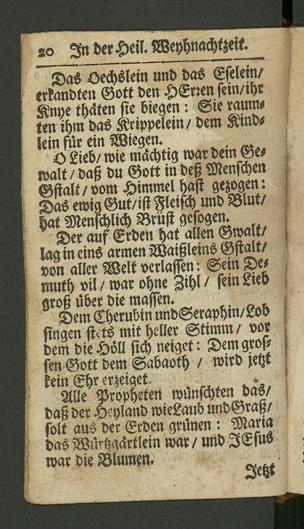 20 In der Heil. Weyhnachtzeit.
Das Oechslein und das Eselein/
erkandten Gott den HErren sein/ihr
Knye thäten sie biegen: Sie raum-
ten ihm das Krippelein/ dem Kind-
lein für ein Wiegen.
O Lieb/ wie mächtig war dein Ge-
walt/ daß du Gott in deß Menschen
Gstalt/ vom Himmel hast gezogen:
Das ewig Gut/ ist Fleisch und Blut/
hat Menschlich Brüst gesogen.
Der auf Erden hat allen Gwalt/
lag in eins armen Waißleins Gstalt/
von aller Welt verlassen: Sein De-
muth vil/ war ohne Zihl/ sein Lieb
groß über die massen.
Dem Cherubin und Seraphin/ Lob
singen stets mit heller Stimm/ vor
dem die Höll sich neiget: Dem gros-
sen Gott dem Sabaoth/ wird jetzt
kein Ehr erzeiget.
Alle Propheten wünschten das/
daß der Heyland wie Laub und Graß/
solt aus der Erden grünen: Maria
das Würtzgärtlein war/ und JEsus
war die Blumen.
Jetzt